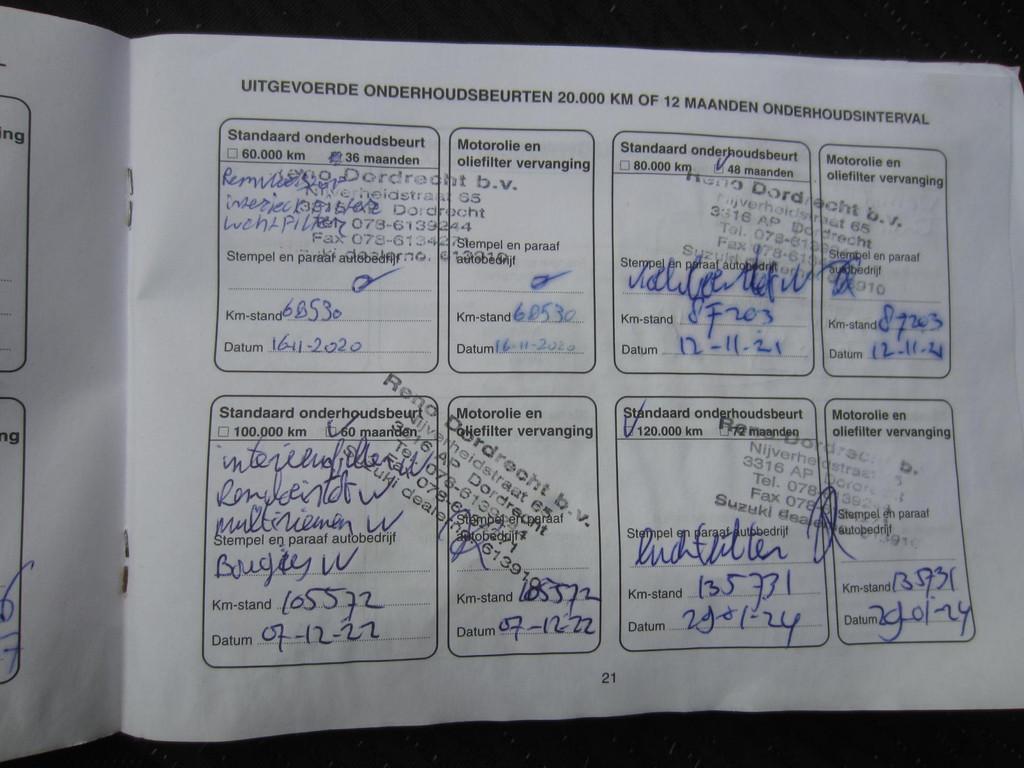 UITGEVOERDE ONDERHOUDSBEURTEN 20.000 KM OF 12 MAANDEN ONDERHOUDSINTERVAL
Standaard onderhoudsbeurt
60.000 km 36 maanden
Reno Dordrecht b.v.
Nijverheidstraat 65
3316 AP Dordrecht
Tel. 078-6139244
Fax 078-6134271
Suzuki dealerno. 613910
luchtfilter
Stempel en paraaf autobedrijf
Km-stand 68530
Datum 16-11-2020
Motorolie en
oliefilter vervanging
Stempel en paraaf
autobedrijf
Km-stand 68530
Datum 16-11-2020
Standaard onderhoudsbeurt
80.000 km 48 maanden
Reno Dordrecht b.v.
Nijverheidstraat 65
3316 AP Dordrecht
Tel. 078-6139244
Fax 078-613
Suzuki
Stempel en paraaf autobedrijf
Km-stand 87203
Datum 12-11-21
Motorolie en
oliefilter vervanging
Stempel en paraaf
autobedrijf
Km-stand 87203
Datum 12-11-21
Standaard onderhoudsbeurt
100.000 km 60 maanden
Reno Dordrecht b.v.
Nijverheidstraat 65
3316 AP Dordrecht
Tel. 078-6139244
Fax 078-6134271
Suzuki dealerno. 613910
interieurfilter V
Remvloeistof V
multiriemen V
Stempel en paraaf autobedrijf
Bougies V
Km-stand 105572
Datum 07-12-22
Motorolie en
oliefilter vervanging
Stempel en paraaf
autobedrijf
Km-stand 105572
Datum 07-12-22
Standaard onderhoudsbeurt
120.000 km 72 maanden
Reno Dordrecht b.v.
Nijverheidstraat
3316 AP Dordrecht
Tel. 078
Fax 078
Suzuki
Stempel en paraaf autobedrijf
luchtfilter
Km-stand 135731
Datum 29-01-24
Motorolie en
oliefilter vervanging
Stempel en paraaf
autobedrijf
Km-stand 135731
Datum 29-01-24
21
ing
ng